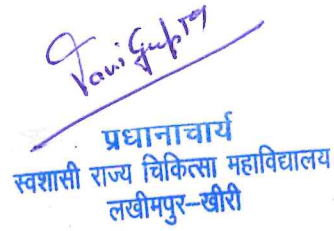 Vani Gupta
प्रधानाचार्य
स्वशासी राज्य चिकित्सा महाविद्यालय
लखीमपुर–खीरी